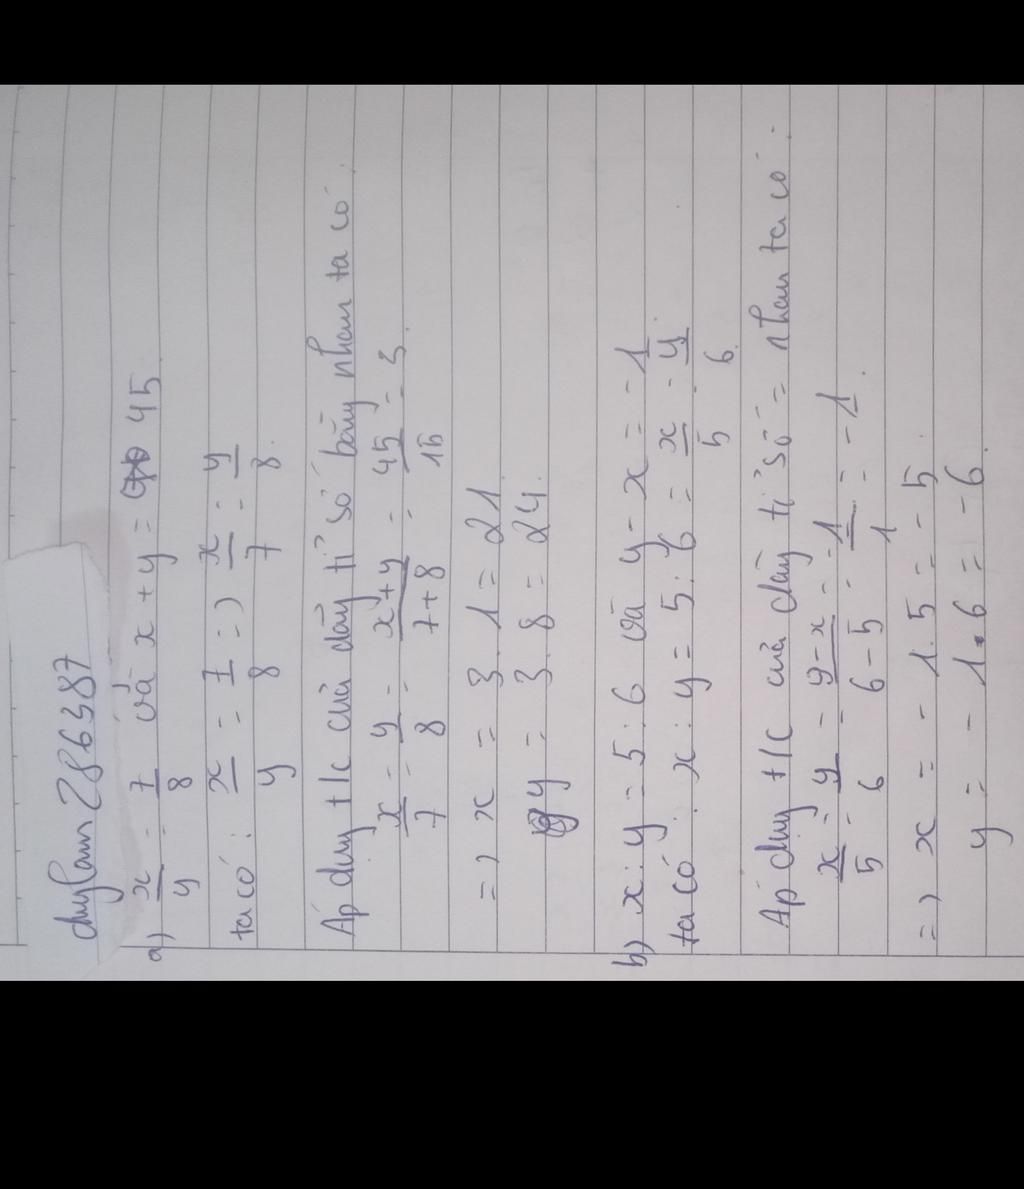 duylam286387
a) x/y = 7/8 và x + y = 45
ta có : x/y = 7/8 => x/7 = y/8.
Áp dụng t/c của dãy tỉ số bằng nhau ta có.
x/7 = y/8 = x+y/7+8 = 45/15 = 3.
=> x = 3.1 = 21
y = 3.8 = 24.
b) x : y = 5 : 6 và y - x = - 1
ta có : x : y = 5 : 6 = x/5 = y/6.
Áp dụng t/c của dãy tỉ số = nhau ta có :
x/5 = y/6 = y-x/6-5 = -1/1 = -1.
=> x = - 1.5 = - 5
y = - 1.6 = - 6.